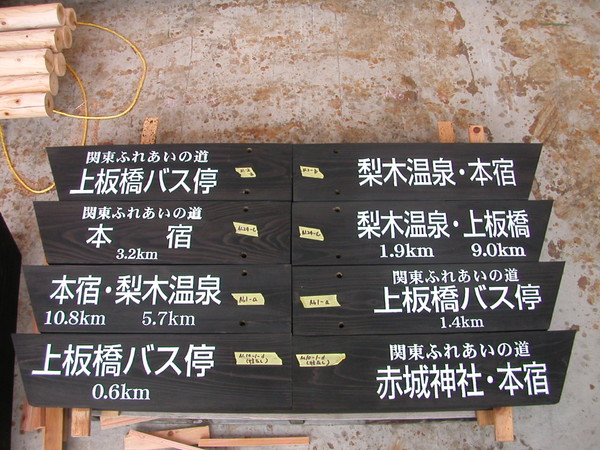 関東ふれあいの道
上板橋バス停
梨木温泉・本宿
関東ふれあいの道
本　宿
3.2km
梨木温泉・上板橋
1.9km 9.0km
本宿・梨木温泉
10.8km 5.7km
関東ふれあいの道
上板橋バス停
1.4km
上板橋バス停
0.6km
関東ふれあいの道
赤城神社・本宿